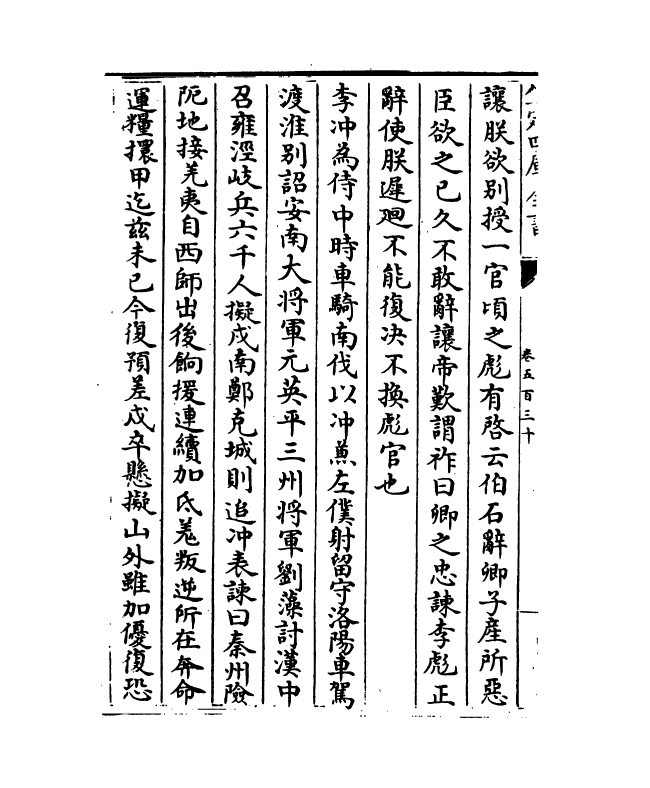 欽定四庫全書
卷五百三十
讓朕欲别授一官頃之彪有啓云伯石辭卿子產所惡
臣欲之已久不敢辭讓帝歎謂祚曰卿之忠諫李彪正
辭使朕遲迴不能復决不換彪官也
李冲為侍中時車騎南伐以冲兼左僕射留守洛陽車駕
渡淮别詔安南大將軍元英平三州將軍劉藻討漢中
召雍涇岐兵六千人擬戍南鄭克城則追冲表諫曰秦州險
阨地接羌夷自西師出後餉援連續加氐羌叛逆所在奔命
運糧擐甲迄兹未已今復預差戍卒懸擬山外雖加優復恐